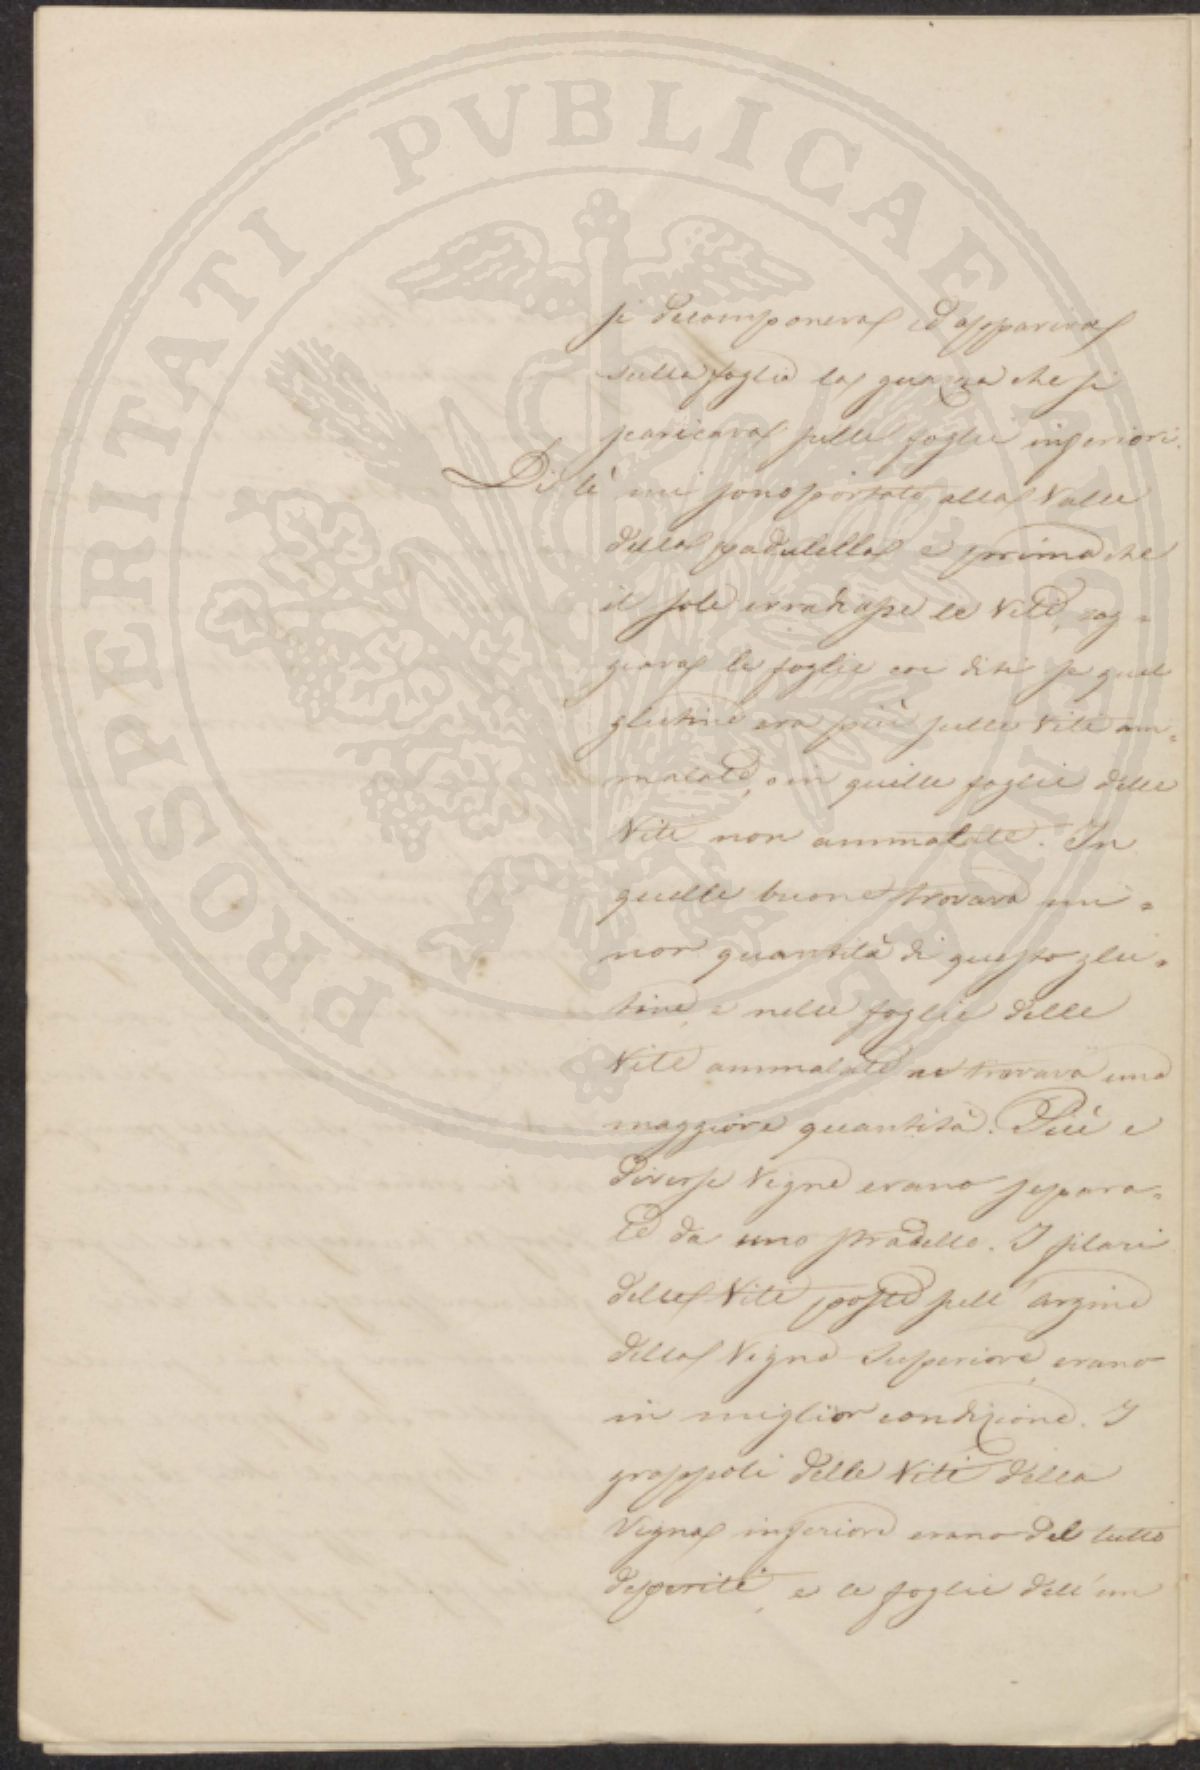 PROSPERITATI PVBLICAE AVGENDAE
si decomponeva ed appariva
sulla foglia la guazza che si
scaricava sulle foglie inferiori.
Di lì mi sono portato alla Valle
della padulella e prima che
il sole irradiasse le Vite, sag=
giava le foglie coi diti se quel
glutine era più sulle Vite am=
malate, o in quelle foglie delle
Vite non ammalate. In
quelle buone trovava mi=
nor quantità di questo glu=
tine, e nelle foglie delle
Vite ammalate ne trovava una
maggiore quantità. Più e
diverse Vigne erano separa=
te da uno stradello. I filari
delle Viti poste sull'argine
della Vigna Superiore, erano
in miglior condizione. I
grappoli delle Viti della
Vigna inferiore erano del tutto
deperiti, e le foglie dell'un